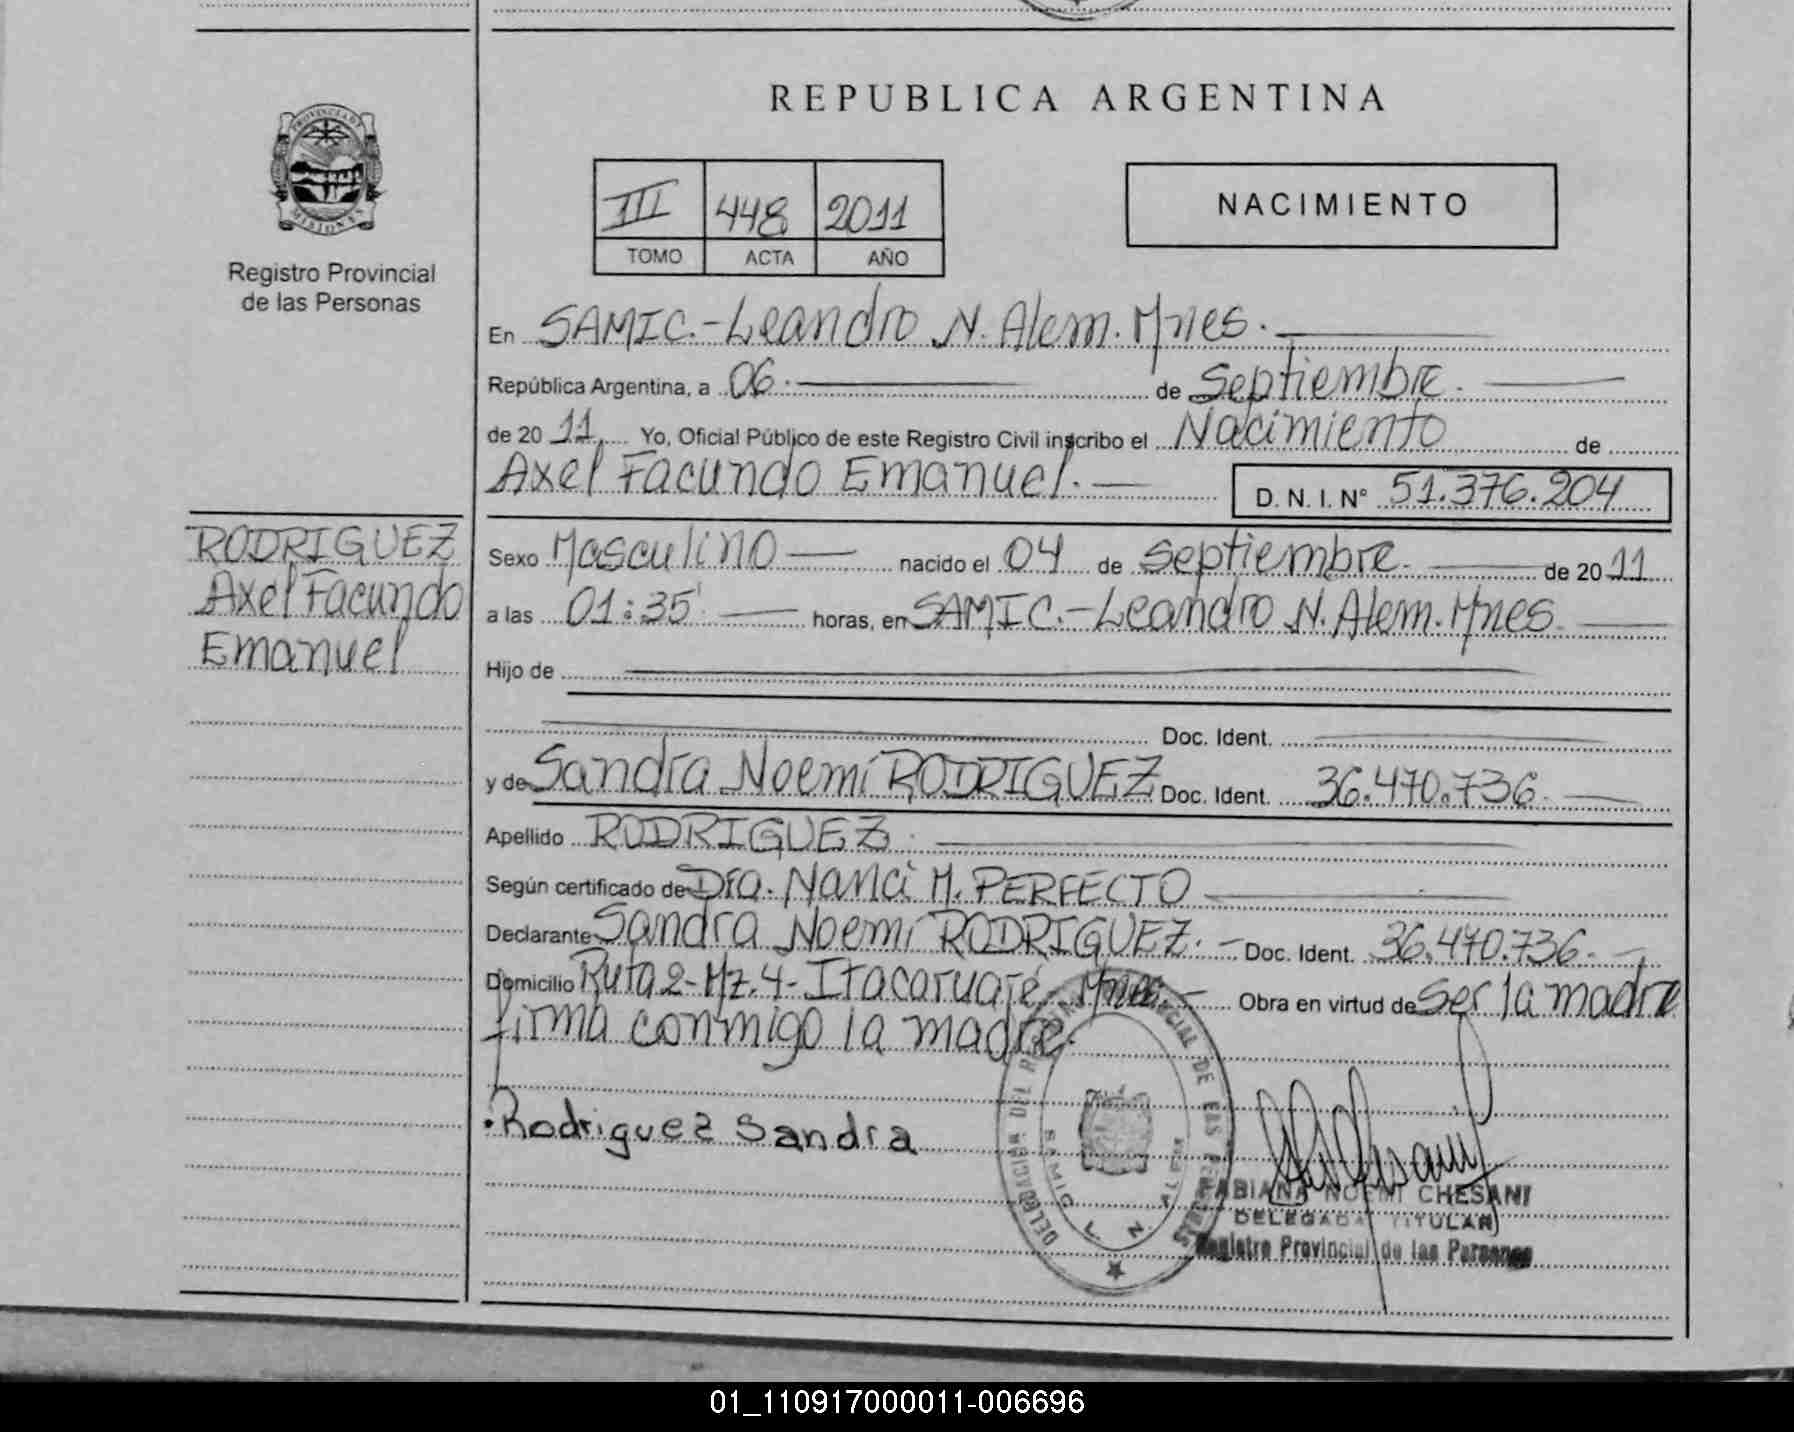 REPUBLICA ARGENTINA
PROVINCIA DE
MISIONES
Registro Provincial
de las Personas
III 448 2011
TOMO ACTA AÑO
NACIMIENTO
En SAMIC.-Leandro N. Alem. Mnes.
República Argentina, a 06. de Septiembre.
de 20 11, Yo, Oficial Público de este Registro Civil inscribo el Nacimiento de
Axel Facundo Emanuel. D. N. I. N° 51.376.204
RODRIGUEZ
Axel Facundo
Emanuel
Sexo Masculino nacido el 04 de Septiembre. de 20 11
a las 01:35' horas, en SAMIC.-Leandro N. Alem. Mnes.
Hijo de
Doc. Ident.
y de Sandra Noemí RODRIGUEZ Doc. Ident. 36.470.736.
Apellido RODRIGUEZ.
Según certificado de Dra. Nanci M. PERFECTO
Declarante Sandra Noemí RODRIGUEZ.- Doc. Ident. 36.470.736.-
Domicilio Ruta 2-Mz.4-Itacaruaré, Mnes.- Obra en virtud de Ser la madre
firma conmigo la madre.
.Rodriguez Sandra
DELEGACION DEL REGISTRO PROVINCIAL DE LAS PERSONAS
SAMIC L. N. ALEM
FABIANA NOEMI CHESANI
DELEGADA TITULAR
Registro Provincial de las Personas
01_110917000011-006696